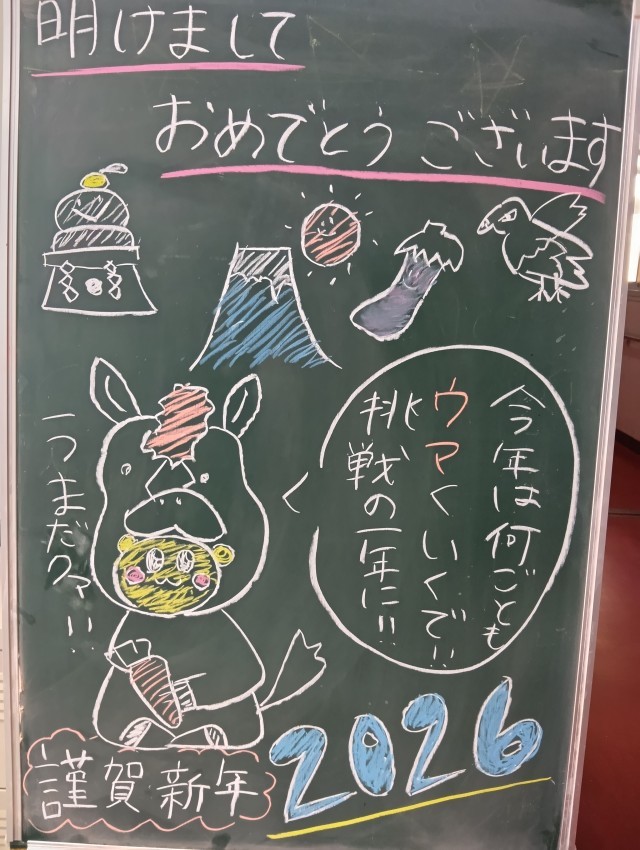 明けまして
おめでとうございます
今年は何ごとも
ウマくいくで!!
挑戦の一年に!!
うまだクマ!!
謹賀新年
2026